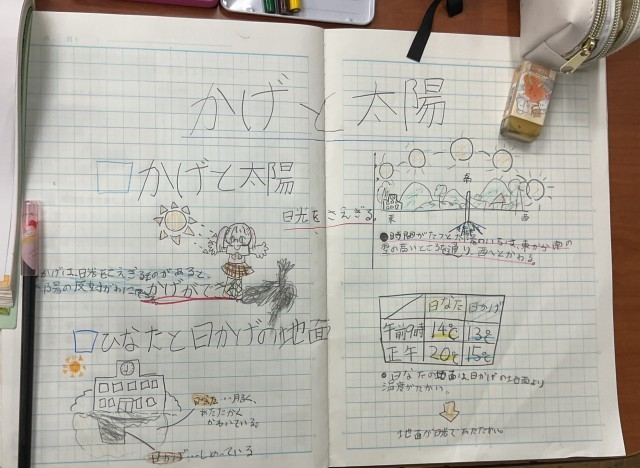 かげと太陽
かげと太陽
日光をさえぎる
かげは、日光をさえぎるものがあると、
太陽の反対がわに
かげができ
ひなたと日かげの地面
日なた…明るく、
あたたかく
かわいている。
日かげ…しめっている
南
東
西
●時間がたつと太陽のいちは、東から南の
空の高いところを通り、西へとかわる。
日なた
日かげ
午前9時
14℃
13℃
正午
20℃
15℃
●日なたの地面は日かげの地面より
温度がたかい。
地面が日光であたたかい。